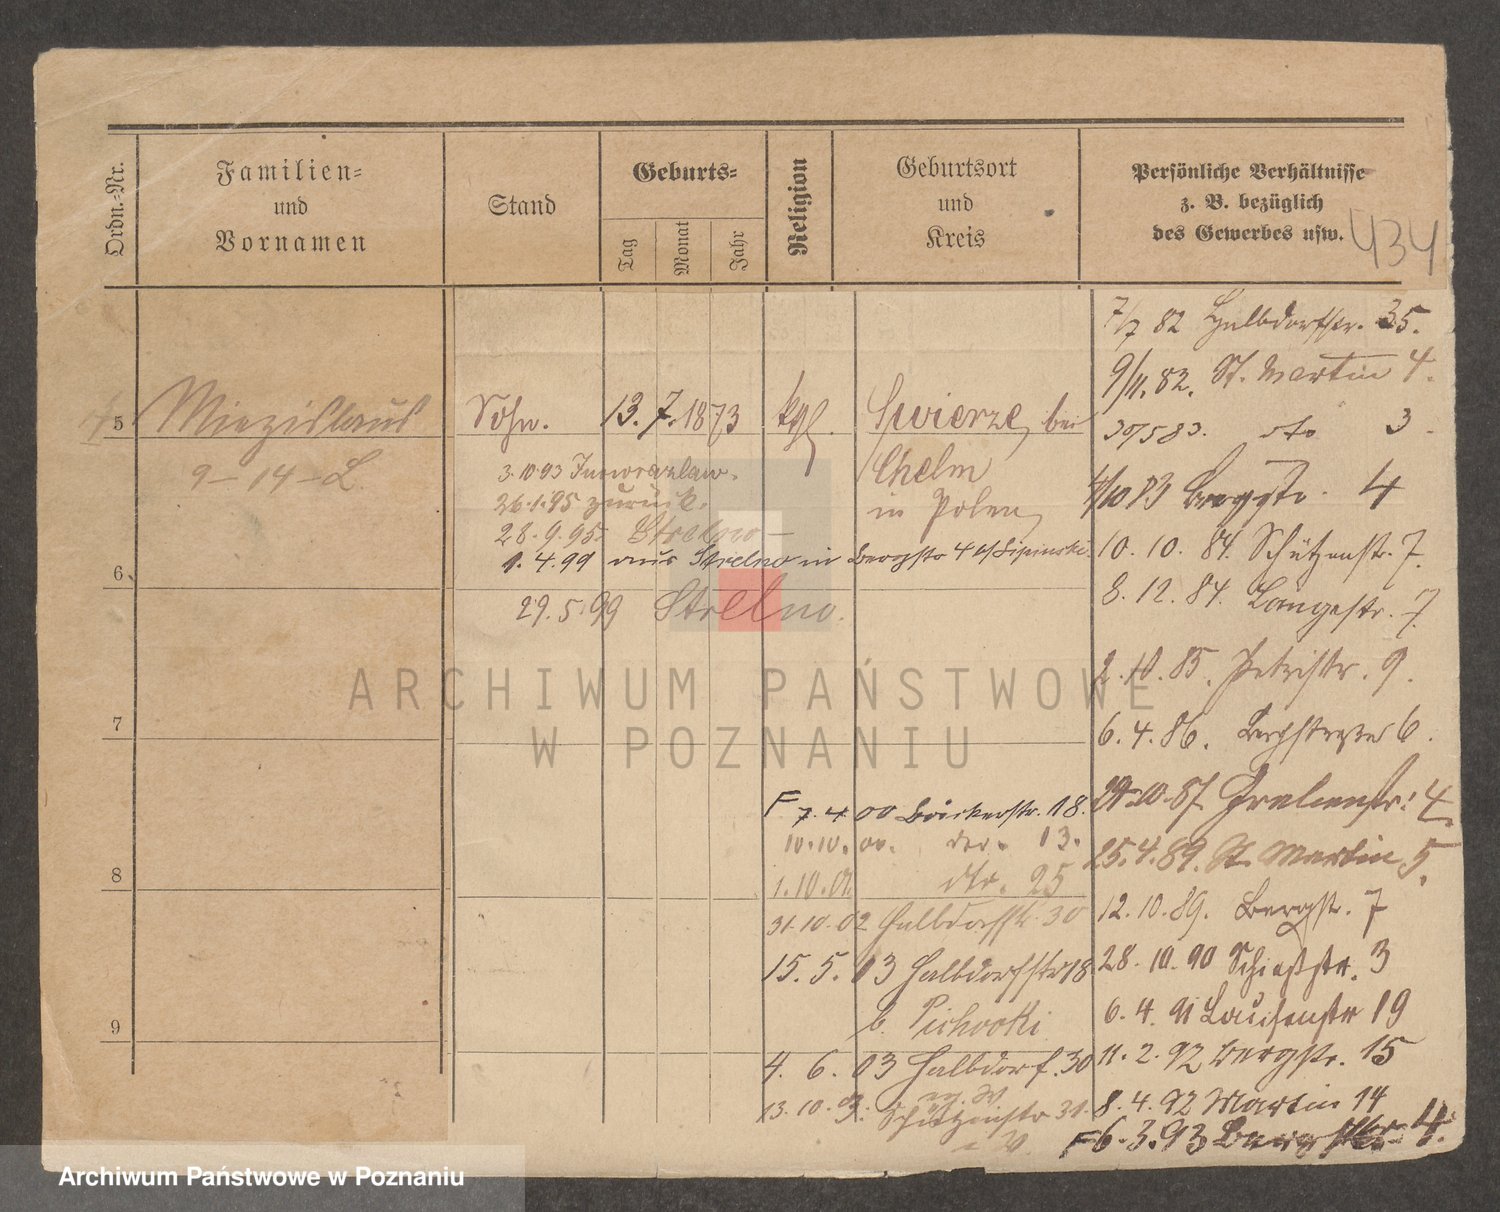 Ordn.-Nr.
Familien-
und
Vornamen
Stand
Geburts-
Tag
Monat
Jahr
Religion
Geburtsort
und
Kreis
Persönliche Verhältnisse
z. B. bezüglich
des Gewerbes usw.
434
5
Miezislaus
9-14-L.
Sohn.
13. 7. 1873
kgl.
Swierze, bei
Chelm
in Polen
3.10.93 Inowrazlaw.
26.1.95 zurück.
28.9.95 Strelno -
1.4.99 aus Strelno in Bergstr 4 b/Lipinski
29.5.99 Strelno.
6
7
8
9
F 7.4.00 Bäckerstr. 18.
10.10.00. 13.
1.10.01 dto. 25
31.10.02 Halbdorfstr 30
15.5.03 Halbdorfstr 18
b.
4.6.03 Halbdorf. 30
13.10.03. Schützenstr 31.
7/7 82 Halbdorfstr. 35.
9/11.82. St. Martin 4.
30/5 83. dto 3.
4/10 83 Bergstr. 4
10.10.84. Schützenstr. 7.
8.12.84. Langestr. 7.
2.10.85. Petristr. 9.
6.4.86. Bergstrasse 6.
10.87. Grabenstr. 4.
25.4.89. St. Martin 5.
12.10.89. Bergstr. 7
28.10.90 Schießstr. 3
6.4.91 Louisenstr 19
11.2.92 Bergstr. 15
8.4.92 Martin 14
F 6.3.93 Bergstr 4.
ARCHIWUM PAŃSTWOWE
W POZNANIU
Archiwum Państwowe w Poznaniu